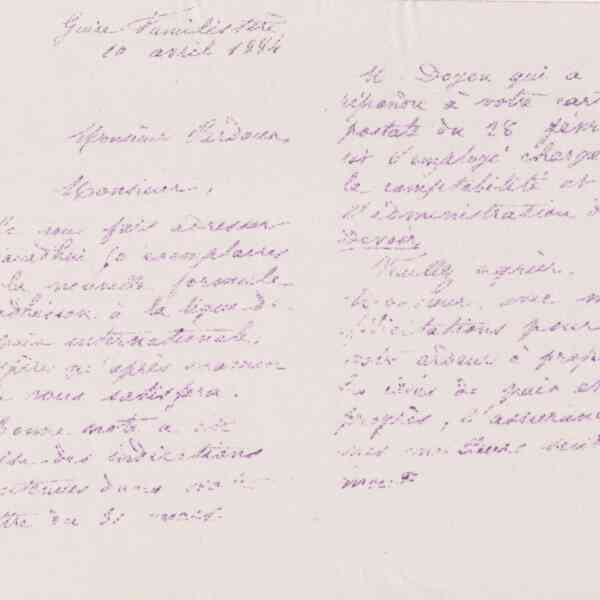 Guise Familistère
10 avril 1884
Monsieur
Monsieur,
Je vous fais adresser
exemplaires
la nouvelle formule
adhésion à la ligue de
paix internationale.
qu'après examen
vous satisfera.
Bonne note a été
des indications
contenues dans
du 31 mars.
M Doyen qui a
répondu à votre cart
postale du 28 févr
est l'employé chargé
la comptabilité et
l'administration d
Devoir
Veuillez agréer,
Monsieur, avec m
félicitations pour
votre ardeur à prop
les idées de paix et
progrès, l'assuranc
mes meilleurs sent
ments